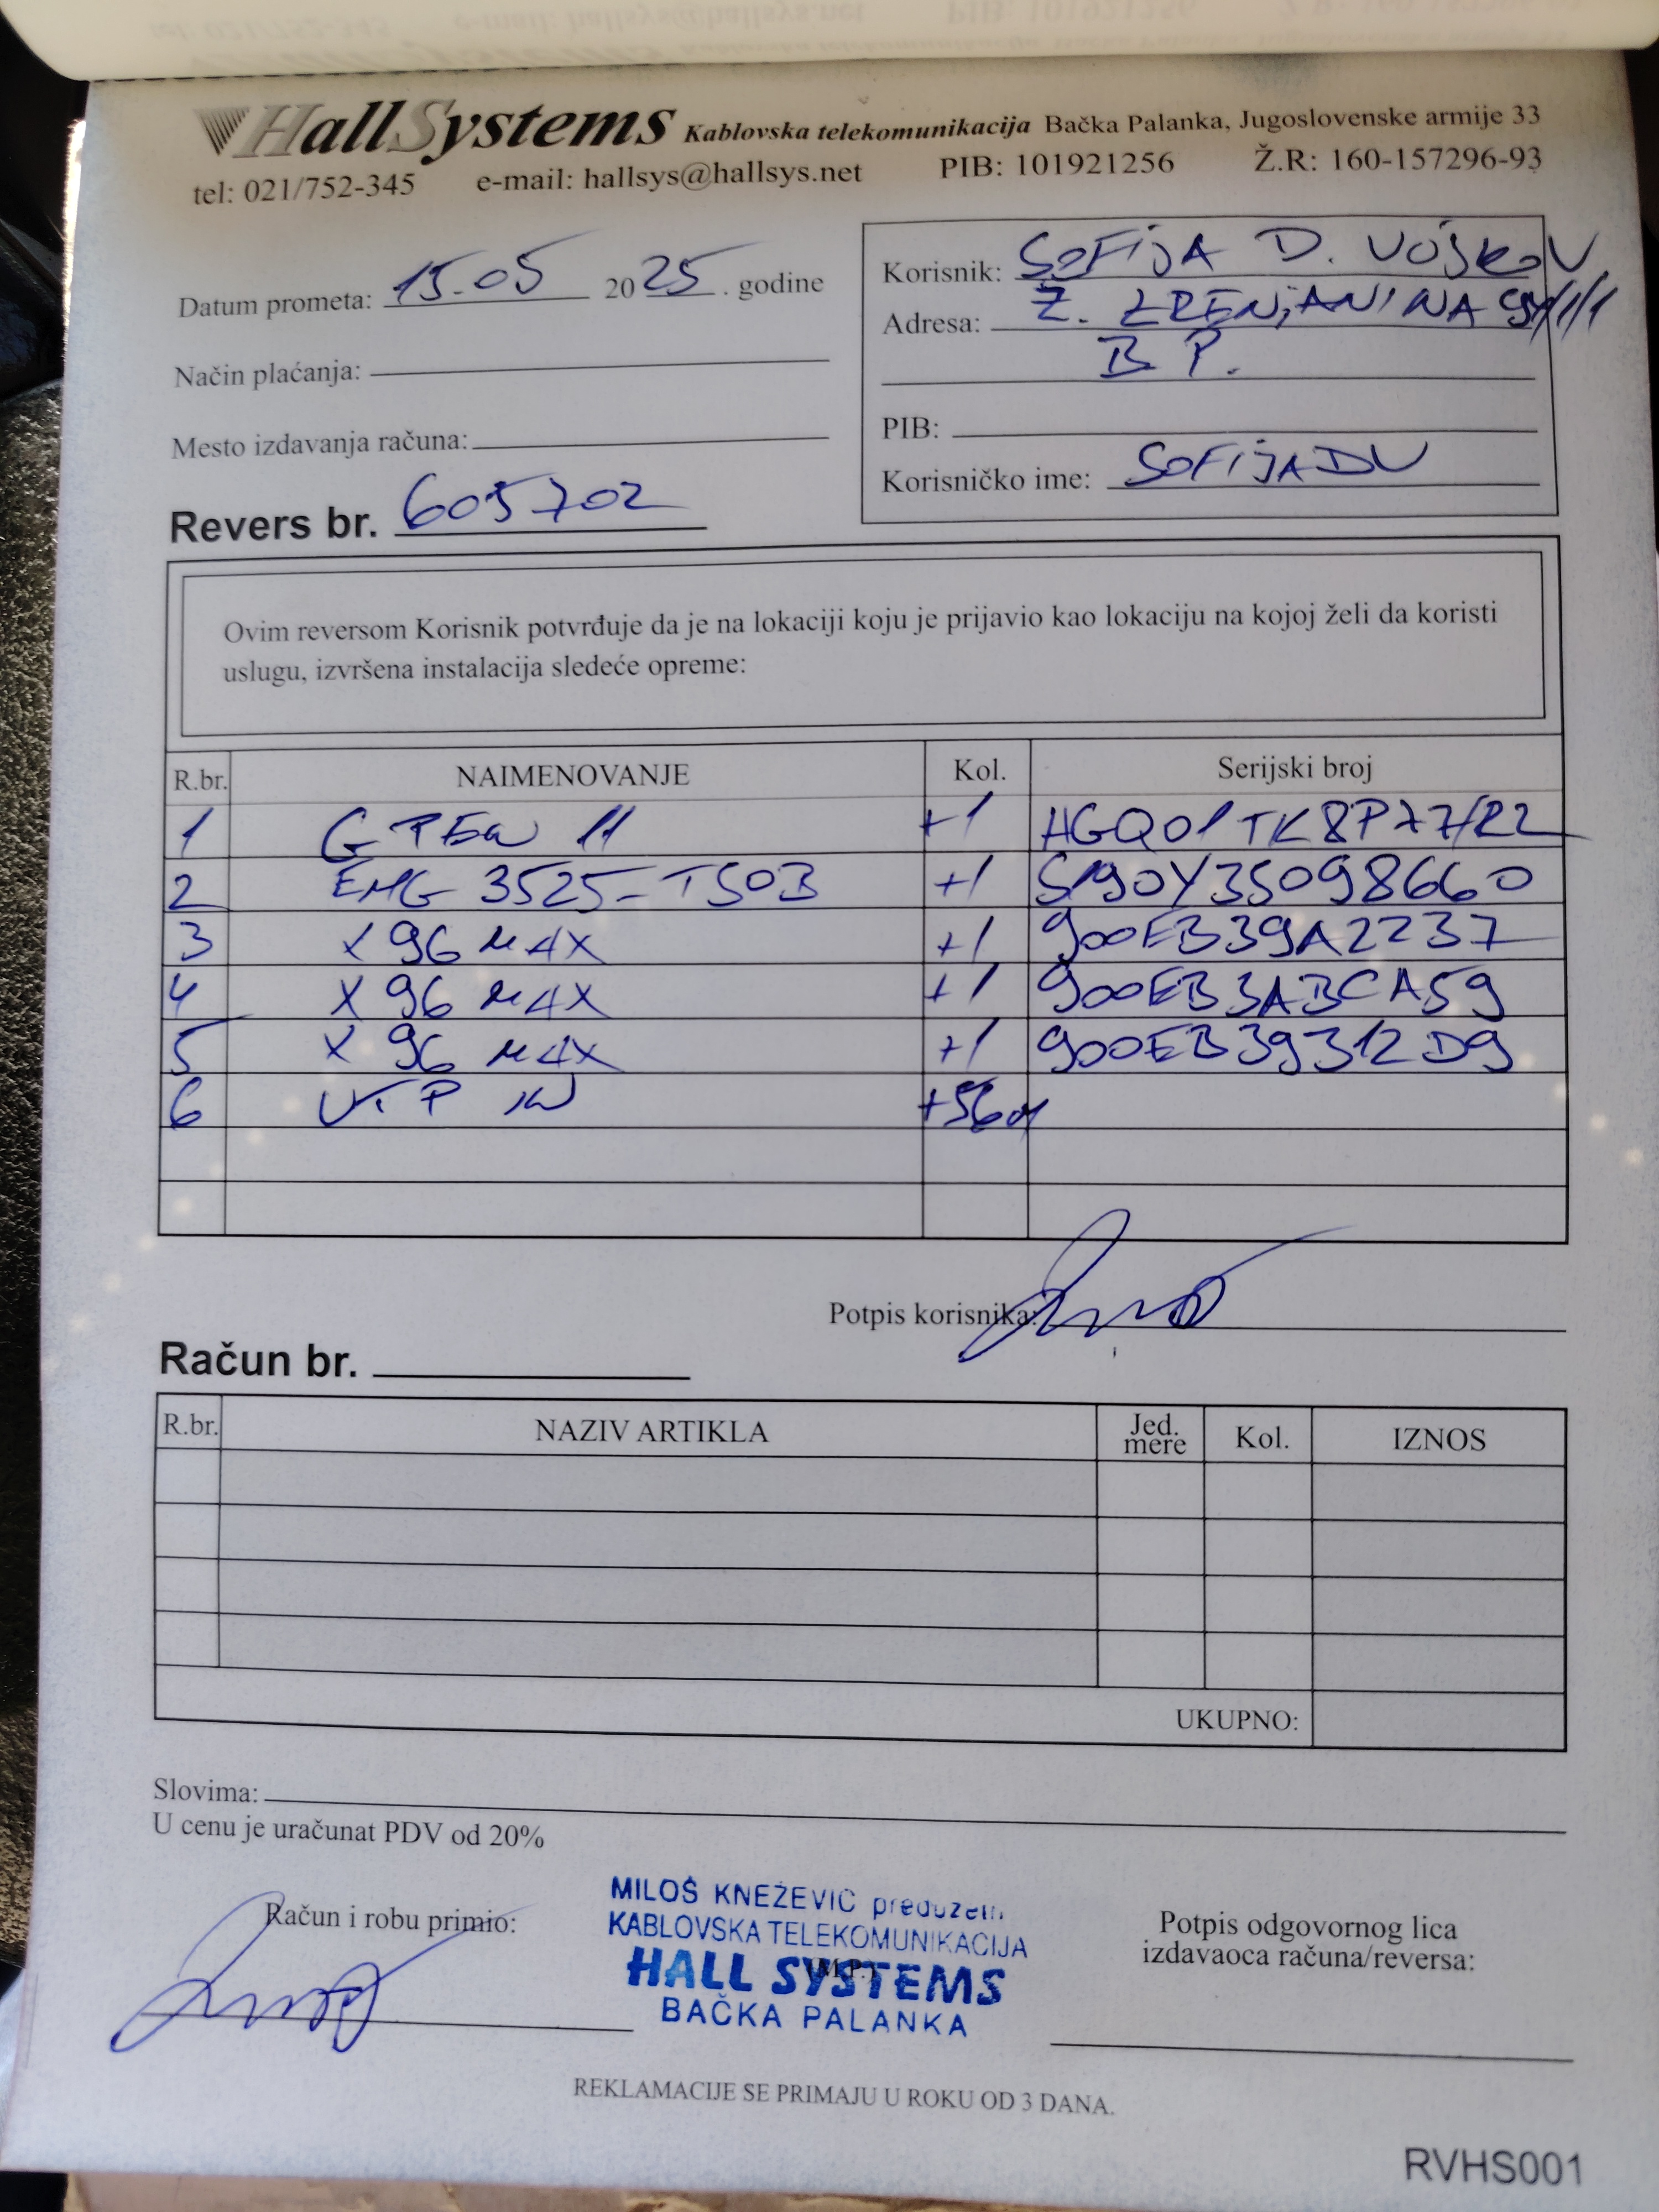 HallSystems Kablovska telekomunikacija Bačka Palanka, Jugoslovenske armije 33
tel: 021/752-345 e-mail: hallsys@hallsys.net PIB: 101921256 Ž.R: 160-157296-93
Datum prometa: 15.05 2025. godine
Način plaćanja:
Mesto izdavanja računa:
Revers br. 605702
Korisnik: SOFIJA D. VOJSKOV
Adresa: Ž. ZRENJANINA
B P.
PIB:
Korisničko ime: SOFIJADV
Ovim reversom Korisnik potvrđuje da je na lokaciji koju je prijavio kao lokaciju na kojoj želi da koristi
uslugu, izvršena instalacija sledeće opreme:
R.br. NAIMENOVANJE Kol. Serijski broj
1 11 +1
2 EMG 3525-T50B +1 S190Y35098660
3 X 96 MAX +1 900EB39A2237
4 X 96 MAX +1 900EB3ABCA59
5 X 96 MAX +1 900EB39312D9
6 UTP +56m
Potpis korisnika:
Račun br.
R.br. NAZIV ARTIKLA Jed. mere Kol. IZNOS
UKUPNO:
Slovima:
U cenu je uračunat PDV od 20%
Račun i robu primio:
MILOŠ KNEŽEVIĆ preduzetn.
KABLOVSKA TELEKOMUNIKACIJA
HALL SYSTEMS
(M.P.)
BAČKA PALANKA
Potpis odgovornog lica
izdavaoca računa/reversa:
REKLAMACIJE SE PRIMAJU U ROKU OD 3 DANA.
RVHS001